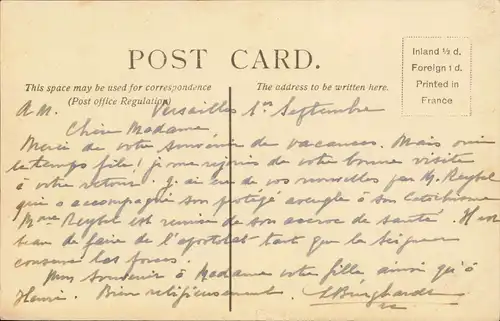 POST CARD.
Inland ½ d.
Foreign 1 d.
Printed in
France
This space may be used for correspondence
(Post office Regulation)
The address to be written here.
Versailles 1er Septembre
Chère Madame,
Merci de votre souvenir de vacances. Mais oui
le temps file! je me réjouis de votre bonne visite
à votre retour. J'ai eu de vos nouvelles par M. Reybel
qui a accompagné son protégé aveugle à son Catéchisme
Mme Reybel est remise de son accroc de santé. Il est
beau de faire de l'apostolat tant que le Seigneur
conserve les forces.
Mon souvenir à Madame votre fille ainsi qu'à
Henri. Bien religieusement.